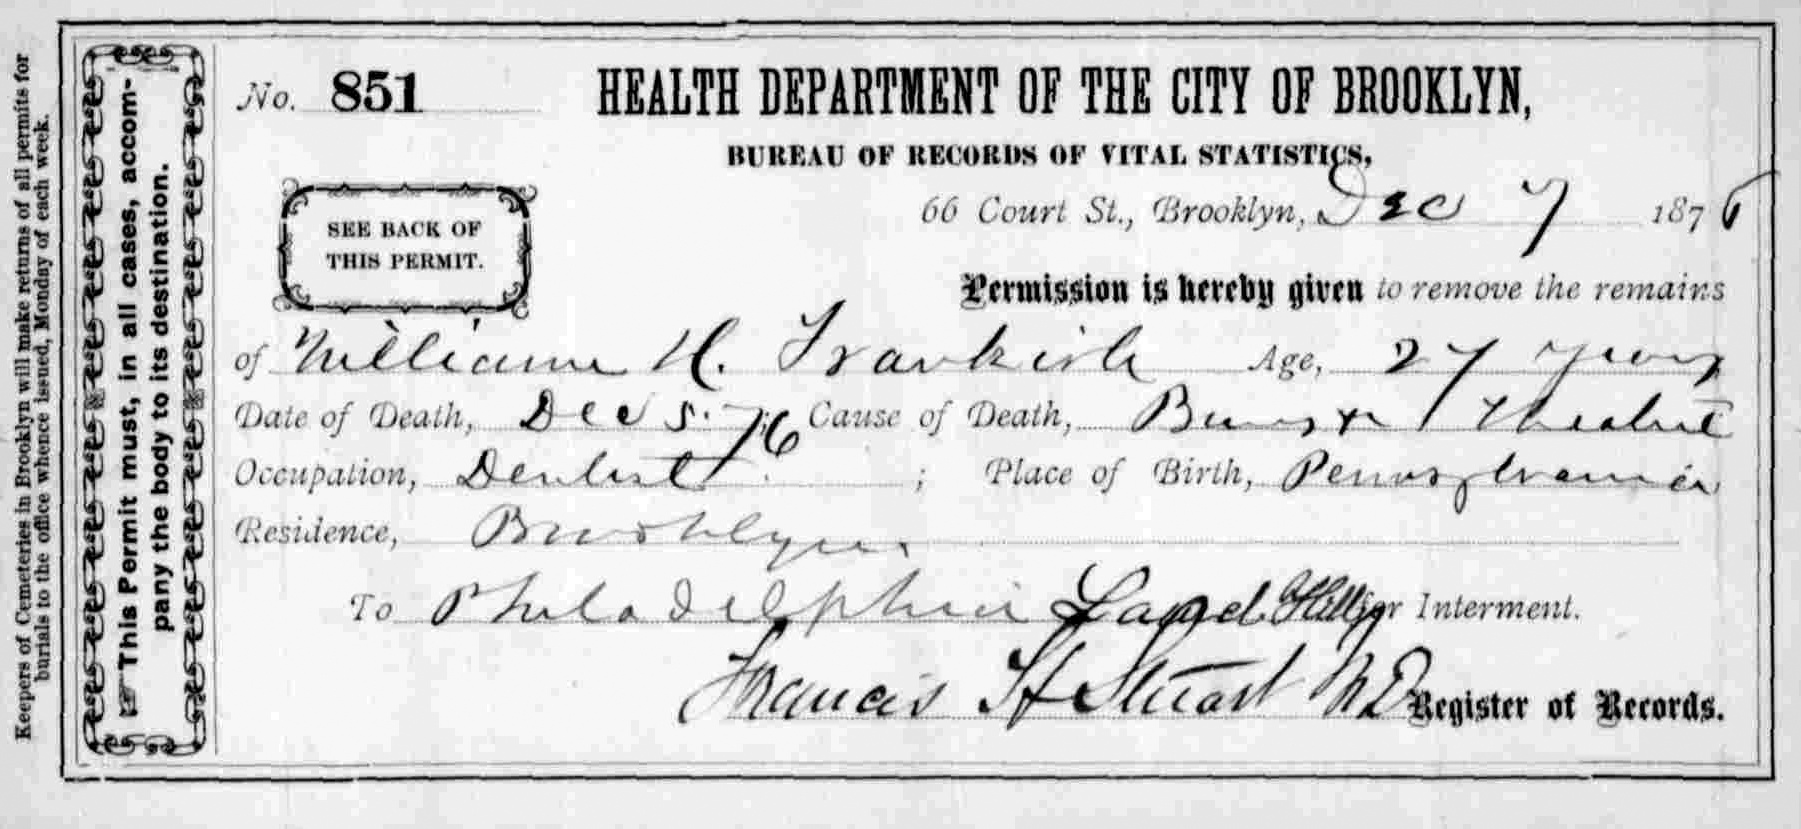 No. 851
HEALTH DEPARTMENT OF THE CITY OF BROOKLYN,
BUREAU OF RECORDS OF VITAL STATISTICS,
66 Court St., Brooklyn, Dec 7 1876
SEE BACK OF
THIS PERMIT.
Permission is hereby given to remove the remains
of William H. Frankish Age, 27 years
Date of Death, Dec 5. 76 Cause of Death, Theatre
Occupation, Dentist ; Place of Birth, Pennsylvania
Residence, Brooklyn
To Philadelphia Hill for Interment.
Francis H Stuart MD Register of Records.
☞ This Permit must, in all cases, accom-
pany the body to its destination.
Keepers of Cemeteries in Brooklyn will make returns of all permits for
burials to the office whence issued, Monday of each week.